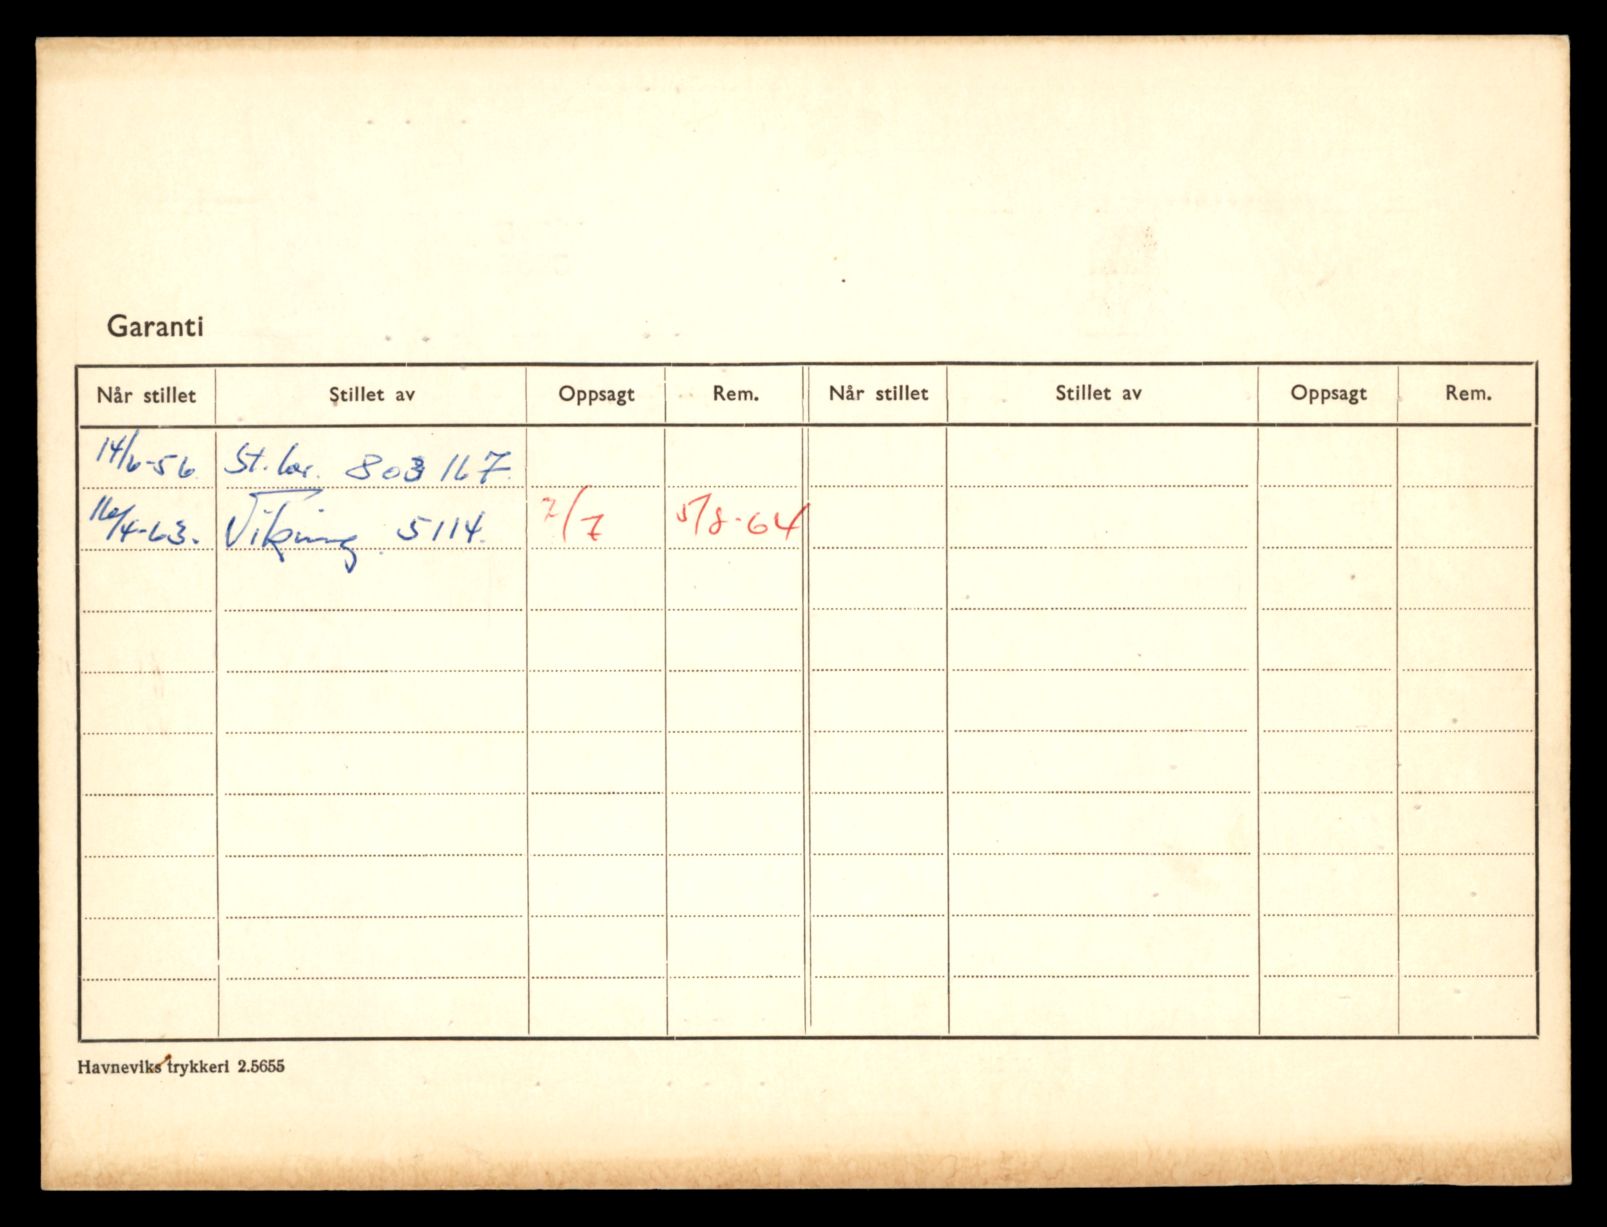 Garanti
Når stillet Stillet av Oppsagt Rem. Når stillet Stillet av Oppsagt Rem.
14/6-56. St. br. 803167.
16/4-63. Viking 5114. 7/7 5/8-64
Havneviks trykkeri 2.5655